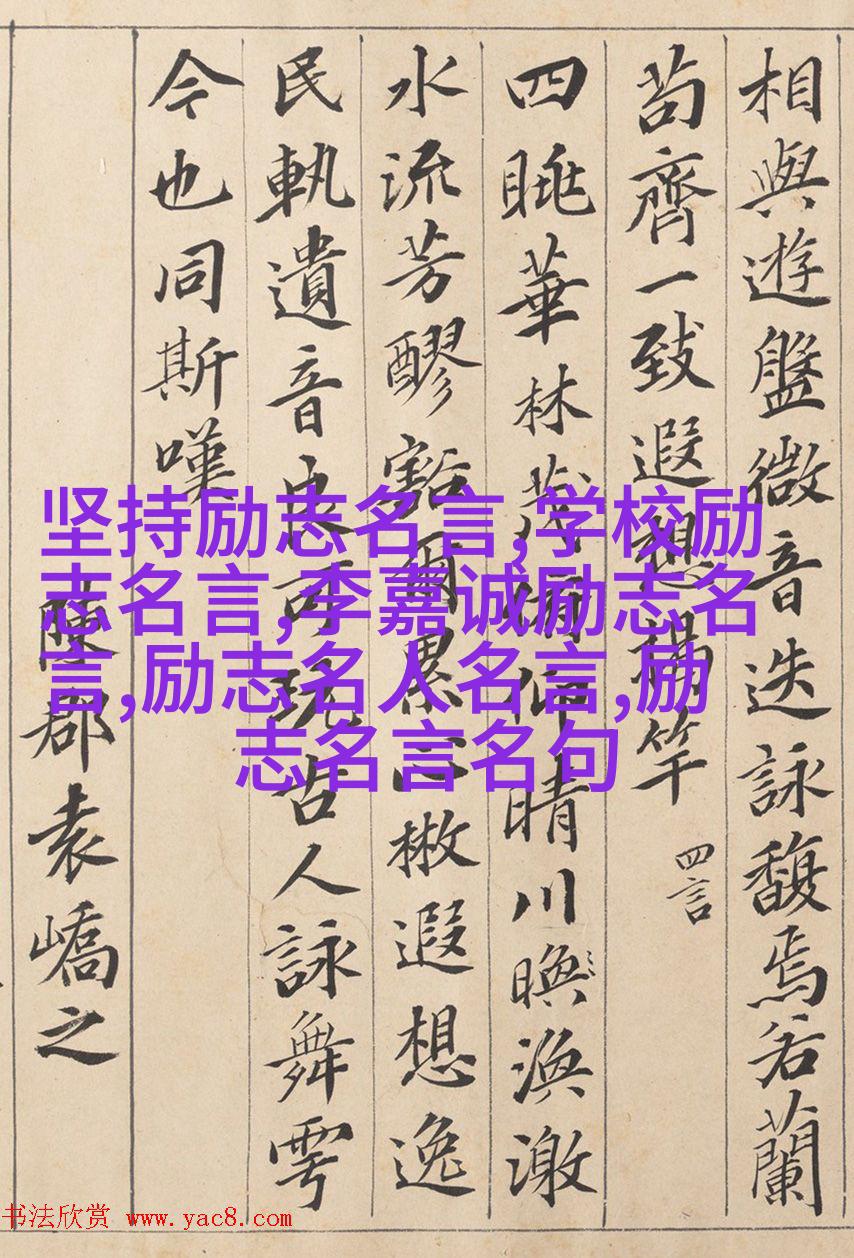 相與遊盤微音迭詠馥焉若蘭
苟齊一致遐想揭竿 四言
四眺華林茂俯仰晴川暎渙激
水流芳醪豁爾累心楸遐想逸
民軌遺音良可玩古人詠舞雩
今也同斯嘆
陳郡袁嶠之
坚持励志名言,学校励
志名言,李嘉诚励志名
言,励志名人名言,励
志名言名句
书法欣赏 www.yac8.com